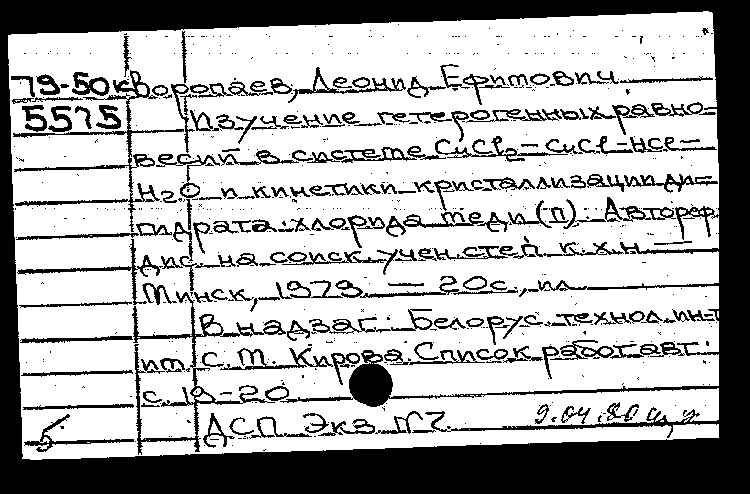 79-50к Воропаев, Леонид Ефимович
5575 Изучение гетерогенных равно-
весий в системе CuCl2-CuCl-HCl-
H2O и кинетики кристаллизации ди-
гидрата хлорида меди (п): Автореф.
дис. на соиск. учен. степ. к.х.н. —
Минск, 1979. — 20с., ил.
В надзаг: Белорус. технол. ин-т
им. С. М. Кирова. Список работ авт:
с. 19-20
5 ДСП Экз. №7 9.04.80